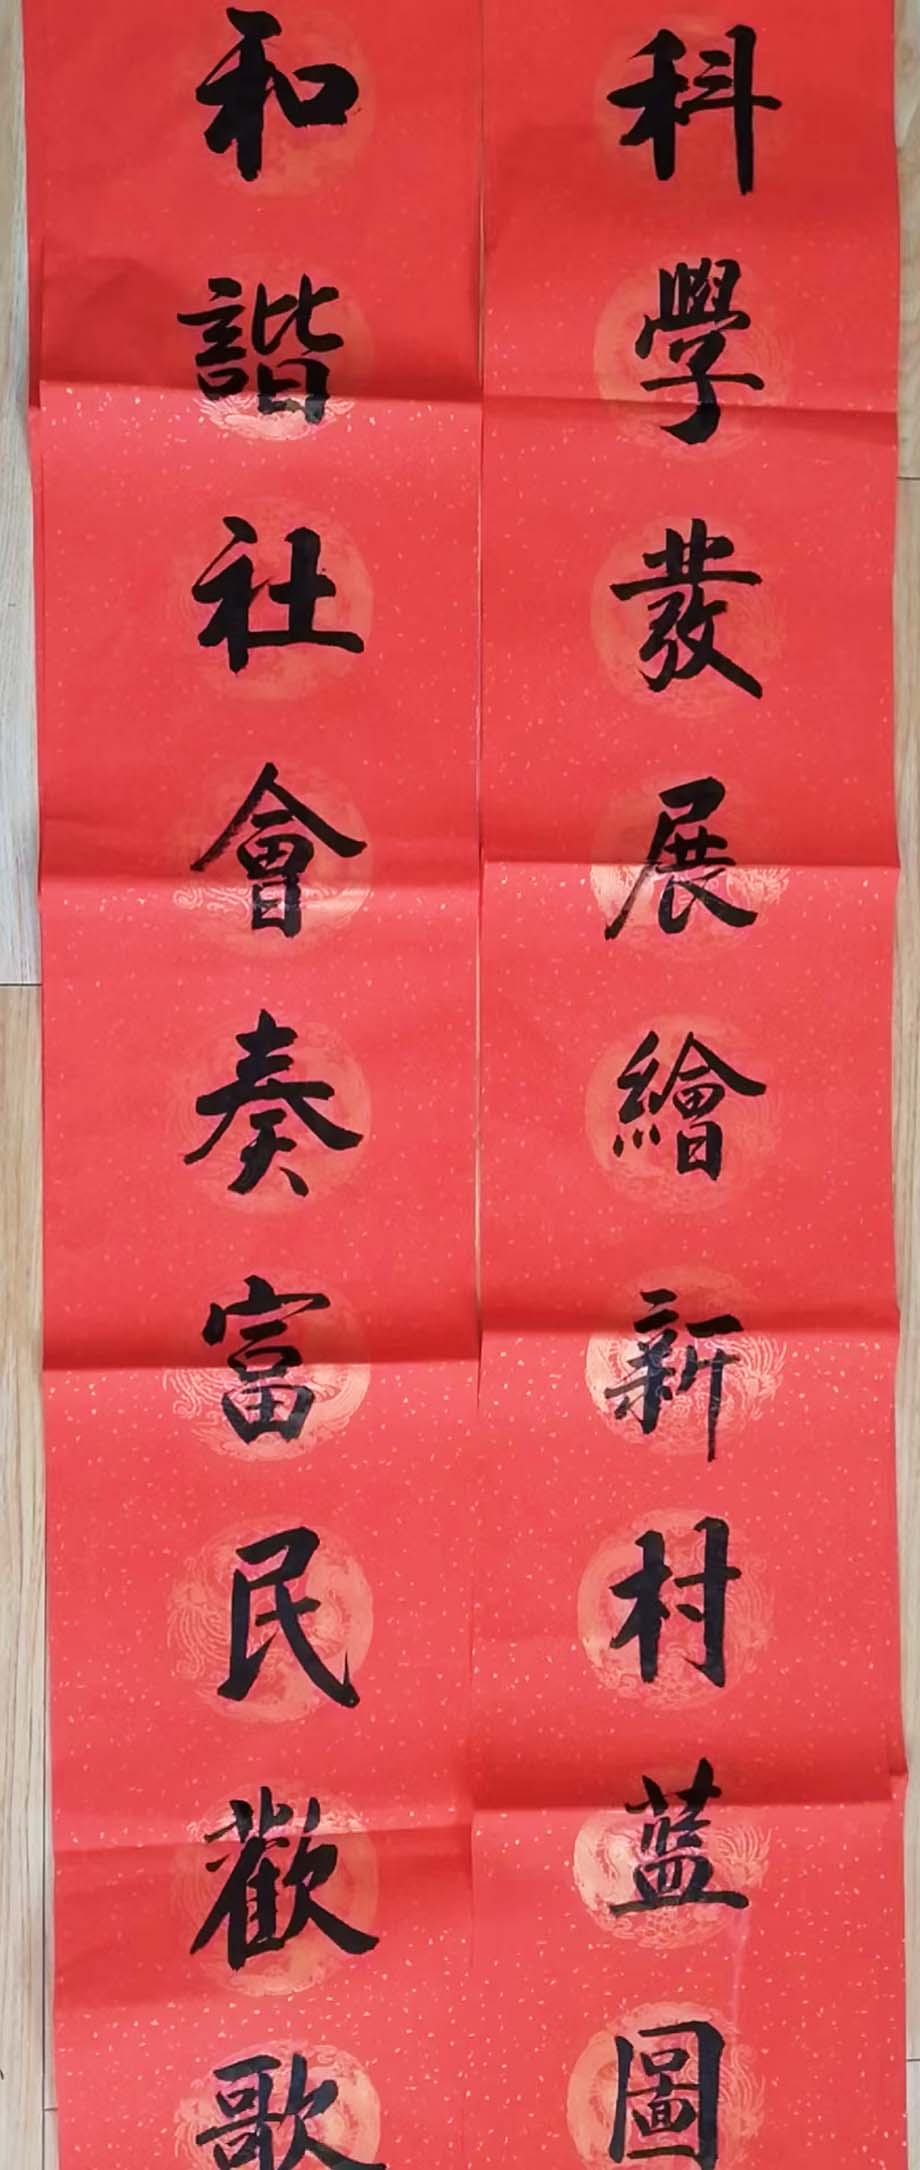 科學發展繪新村藍圖
和諧社會奏富民歡歌